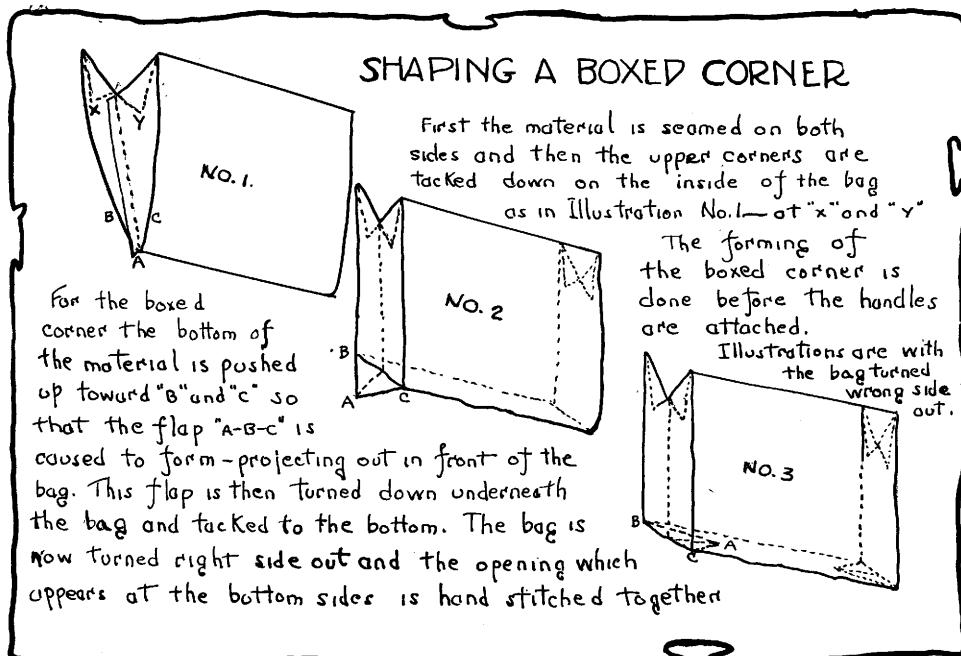 SHAPING A BOXED CORNER
First the material is seamed on both
sides and then the upper corners are
tacked down on the inside of the bag
as in Illustration No.1—at "x" and "Y"
The forming of
the boxed corner is
done before the handles
are attached.
Illustrations are with
the bag turned
wrong side
out.
X
Y
NO. 1.
B
C
A
NO. 2
B
A
C
NO. 3
B
A
C
For the boxed
corner the bottom of
the material is pushed
up toward "B" and "C" so
that the flap "A-B-C" is
caused to form-projecting out in front of the
bag. This flap is then turned down underneath
the bag and tacked to the bottom. The bag is
now turned right side out and the opening which
appears at the bottom sides is hand stitched together